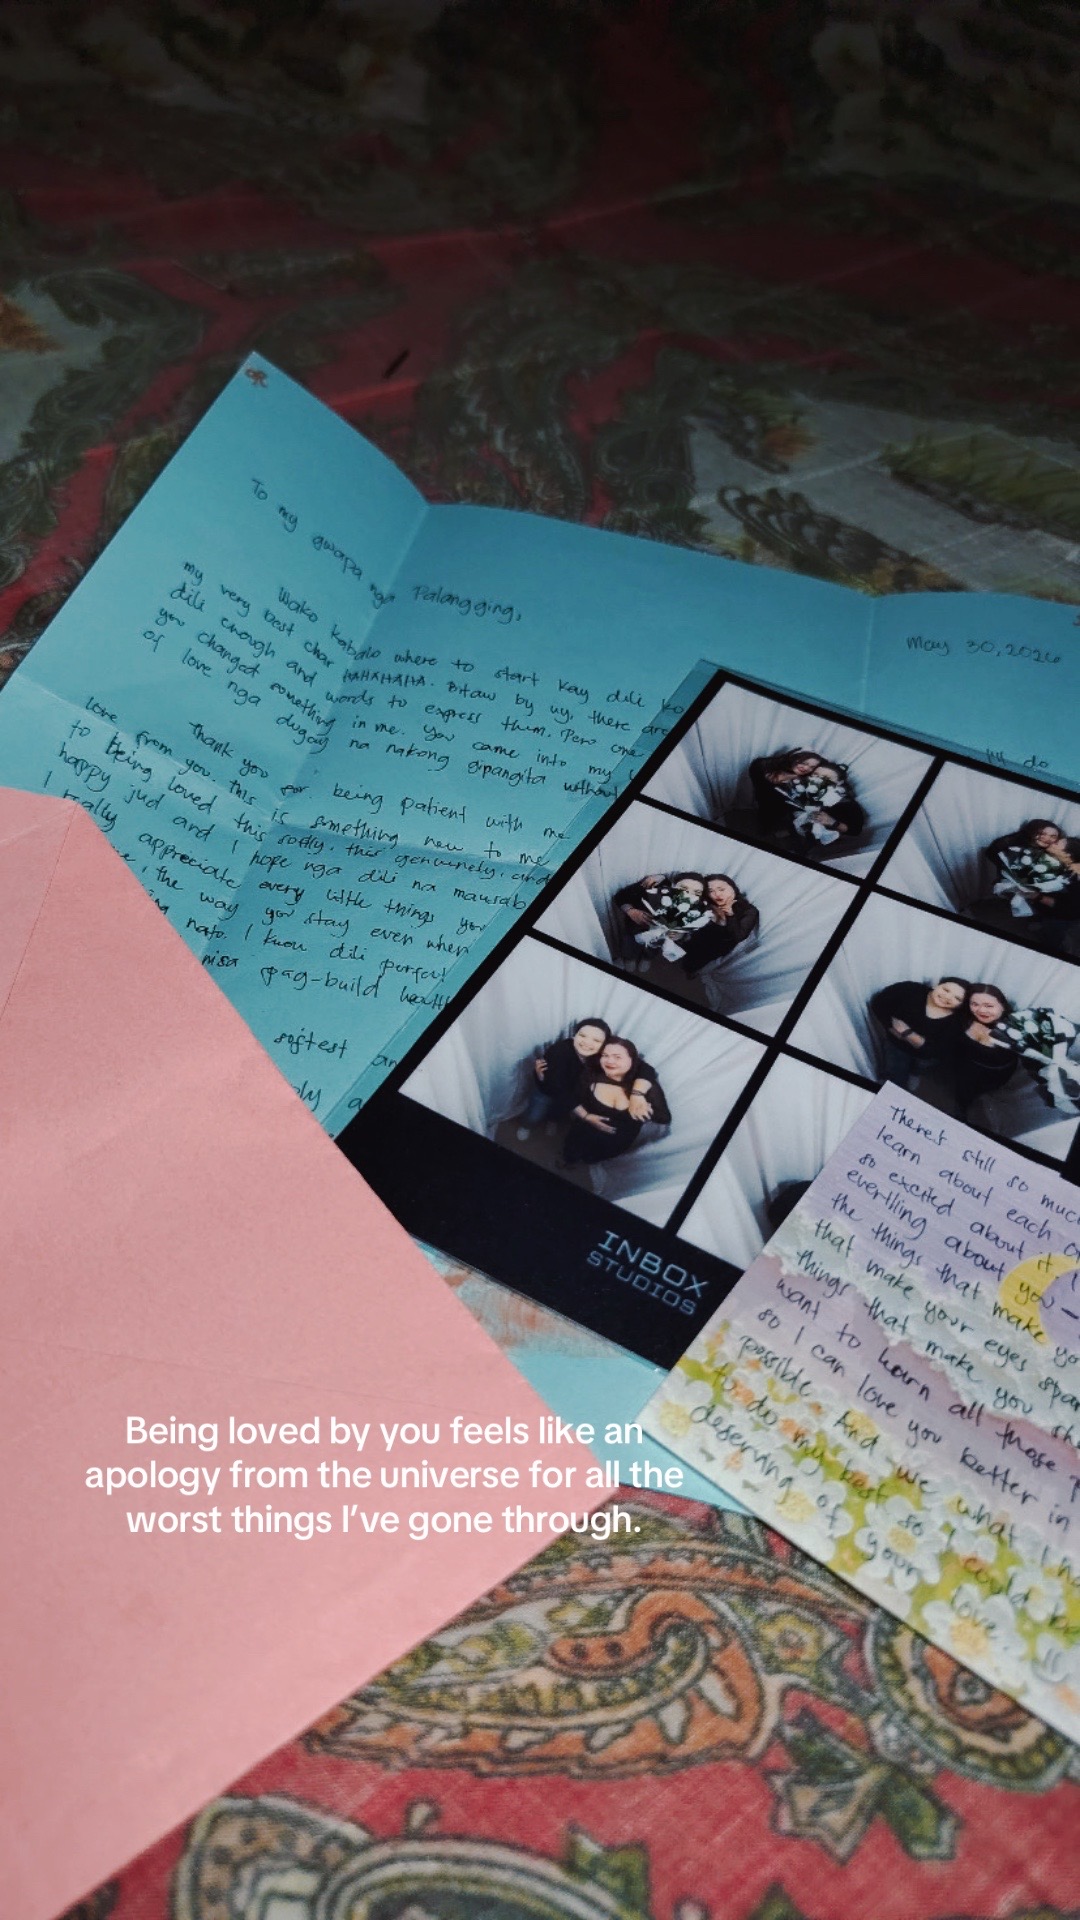 To my gwapa nga Palangging,
May 30, 2026
Wako kabalo where to start kay dili ko
my very best char HAHAHAHA. Bitaw by uy, there are
dili enough and words to express them. Pero one
you changed something in me. You came into my
of love nga dugay na nakong gipangita without
Thank you for being patient with me
love from you. this is something new to me
to being loved this softly, this genuinely, and
happy jud and I hope nga dili na mausab
I really appreciate every little things you
the way you stay even when
nato. I know dili perfect
pag-build
softest
There's still so much
learn about each
so excited about it
everything about you
the things that make
that make your eyes
things that make you
want to learn all those
so I can love you better in
possible. And
to do my best so I could
deserving of your love.
INBOX
STUDIOS
Being loved by you feels like an
apology from the universe for all the
worst things I've gone through.